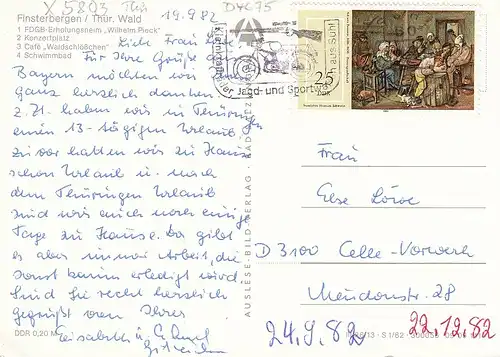 X 5803 Thür
D4675
Finsterbergen / Thür. Wald
19.9.82
1 FDGB-Erholungsheim „Wilhelm Pieck"
2 Konzertplatz
3 Café „Waldschlößchen"
4 Schwimmbad
Liebe Frau Löwe
Für Ihre Grüße aus
Bayern möchten wir Ihnen
ganz herzlich danken
z. Zt. haben wir in Thüringen
einen 13-tägigen Urlaub
zuvor hatten wir zu Hause
schon Urlaub u. nach
dem Thüringen Urlaub
sind wir auch noch einige
Tage zu Hause. Da gibt
es aber immer Arbeit, die
sonst kaum erledigt wird
Sind Sie recht herzlich
gegrüßt von Ihrer
Elisabeth u.
DDR 0,20 M
AUSLESE-BILD-VERLAG
25
DDR
haus Suhl
Jagd- und Sportwaffen
Frau
Else Löwe
D 3100 Celle-Vorwerk
28
24.9.82
22.12.82
S 1/82